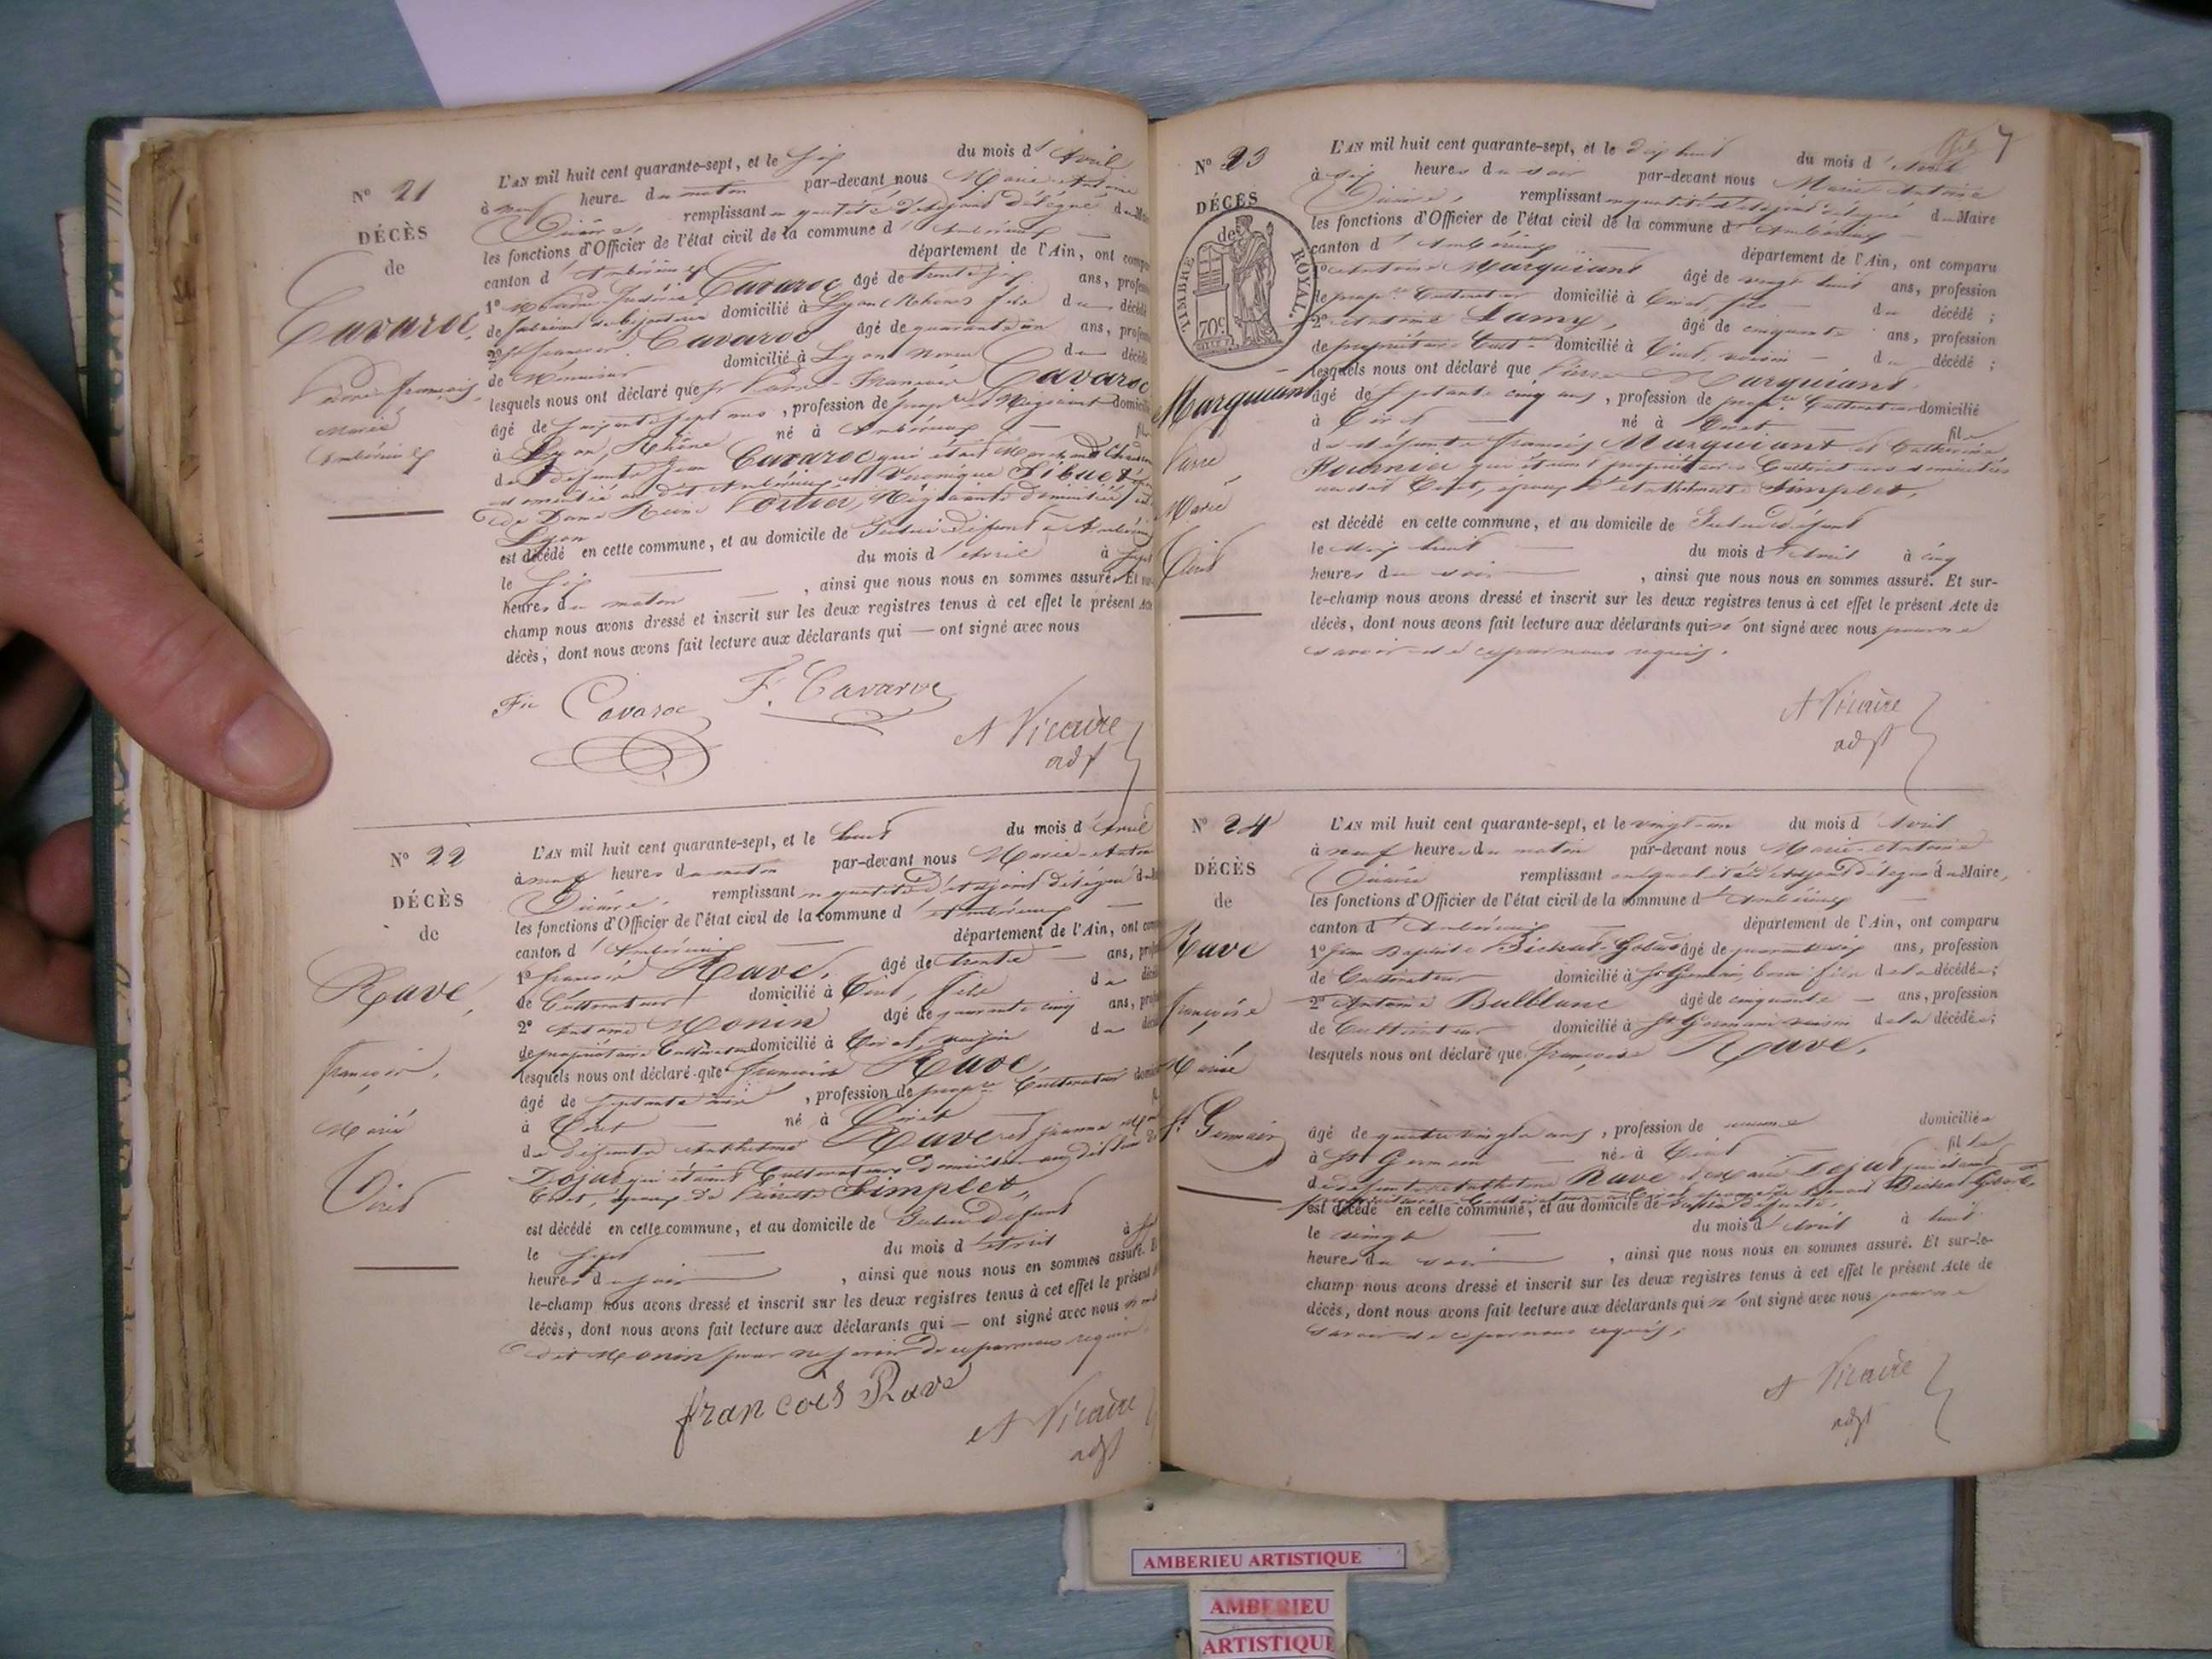 N° 21
DÉCÈS
de
Cavaroc,
Pierre-françois,
Marié
Ambérieux
L'AN mil huit cent quarante-sept, et le Six du mois d'Avril
à neuf heure du matin par-devant nous Marie-Antoine
Vicaire, remplissant en qualité d'adjoint délégué du Maire
les fonctions d'Officier de l'état civil de la commune d'Ambérieux
canton d'Ambérieux département de l'Ain, ont comparu
1° Cavaroc âgé de trente six ans, profession
de fabricant de bijouterie domicilié à Lyon (Rhône) fils du décédé
2° françois Cavaroc âgé de quarante un ans, profession
de domicilié à Lyon neveu du décédé
lesquels nous ont déclaré que Sr Pierre-François Cavaroc
âgé de soixante sept ans, profession de prop.re et Négociant domicilié
à Lyon, Rhône né à Ambérieux fils
de défunts Jean Cavaroc qui était Marchand
domicilié au dit Ambérieux et Véronique Sibuet
de Dame Reine Négociante domiciliée
Lyon
est décédé en cette commune, et au domicile de défunt à Ambérieux
le Six du mois d'Avril à Sept
heures du matin, ainsi que nous nous en sommes assuré. Et sur
champ nous avons dressé et inscrit sur les deux registres tenus à cet effet le présent Acte
décès, dont nous avons fait lecture aux déclarants qui — ont signé avec nous
Cavaroc F. Cavaroc
A Vicaire
adjt
N° 22
DÉCÈS
de
Rave,
françois,
Marié
L'AN mil huit cent quarante-sept, et le huit du mois d'Avril
à neuf heures du matin par-devant nous Marie-Antoine
Vicaire, remplissant en qualité d'adjoint délégué du
les fonctions d'Officier de l'état civil de la commune d'Ambérieux
canton d'Ambérieux département de l'Ain, ont comparu
1° françois Rave, âgé de trente ans, profession
de Cultivateur domicilié à fils du décédé
2° Antoine Monin âgé de quarante cinq ans, profession
de propriétaire Cultivateur domicilié à voisin du décédé
lesquels nous ont déclaré que françois Rave,
âgé de septante, profession de prop.re Cultivateur domicilié
à né à
de défunts Anthelme Rave et Jeanne
Dojat qui étaient Cultivateurs domiciliés au dit lieu de
époux de Simplet,
est décédé en cette commune, et au domicile de défunt
le Sept du mois d'Avril à
heures du soir, ainsi que nous nous en sommes assuré. Et
le-champ nous avons dressé et inscrit sur les deux registres tenus à cet effet le présent
décès, dont nous avons fait lecture aux déclarants qui — ont signé avec nous
dit Monin pour ne savoir de ce par nous requis.
francois Rave
A Vicaire
adjt
7
N° 23
DÉCÈS
de
TIMBRE ROYAL.
70c
Marguiant
Pierre,
Marié
L'AN mil huit cent quarante-sept, et le dix huit du mois d'Avril
à six heures du soir par-devant nous Marie Antoine
Vicaire, remplissant en qualité d'adjoint délégué du Maire
les fonctions d'Officier de l'état civil de la commune d'Ambérieux
canton d'Ambérieux département de l'Ain, ont comparu
1° Antoine Marguiant âgé de vingt huit ans, profession
de prop.re Cultivateur domicilié à fils du décédé ;
2° Antoine Lamy, âgé de cinquante ans, profession
de propriétaire Cult.eur domicilié à voisin du décédé ;
lesquels nous ont déclaré que Pierre Marguiant
âgé de septante cinq ans, profession de prop.re Cultivateur domicilié
à né à fils
de défunts françois Marguiant et Catherine
Fournier qui étaient propriétaires Cultivateurs domiciliés
au dit époux d' Simplet,
est décédé en cette commune, et au domicile de défunt
le dix huit du mois d'Avril à cinq
heures du soir, ainsi que nous nous en sommes assuré. Et sur-
le-champ nous avons dressé et inscrit sur les deux registres tenus à cet effet le présent Acte de
décès, dont nous avons fait lecture aux déclarants qui n'ont signé avec nous pour ne
savoir de ce par nous requis.
A Vicaire
adjt
N° 24
DÉCÈS
de
Rave
françoise
Mariée
St Germain
L'AN mil huit cent quarante-sept, et le vingt-un du mois d'Avril
à neuf heures du matin par-devant nous Marie-Antoine
Vicaire remplissant en qualité d'adjoint délégué du Maire,
les fonctions d'Officier de l'état civil de la commune d'Ambérieux
canton d'Ambérieux département de l'Ain, ont comparu
1° Jean Baptiste âgé de quarante six ans, profession
de Cultivateur domicilié à St Germain, de la décédée ;
2° Antoine Bulblanc âgé de cinquante ans, profession
de Cultivateur domicilié à St Germain voisin de la décédée ;
lesquels nous ont déclaré que françoise Rave,
âgé de quatre vingts ans, profession de domiciliée
à St Germain née à fille
de défunts Anthelme Rave et Marie Dojat qui étaient
est décédé en cette commune, et au domicile de
le vingt du mois d'Avril à huit
heures du soir, ainsi que nous nous en sommes assuré. Et sur-le-
champ nous avons dressé et inscrit sur les deux registres tenus à cet effet le présent Acte de
décès, dont nous avons fait lecture aux déclarants qui n'ont signé avec nous pour ne
savoir de ce par nous requis ;
A Vicaire
adjt
AMBERIEU ARTISTIQUE
AMBERIEU
ARTISTIQUE